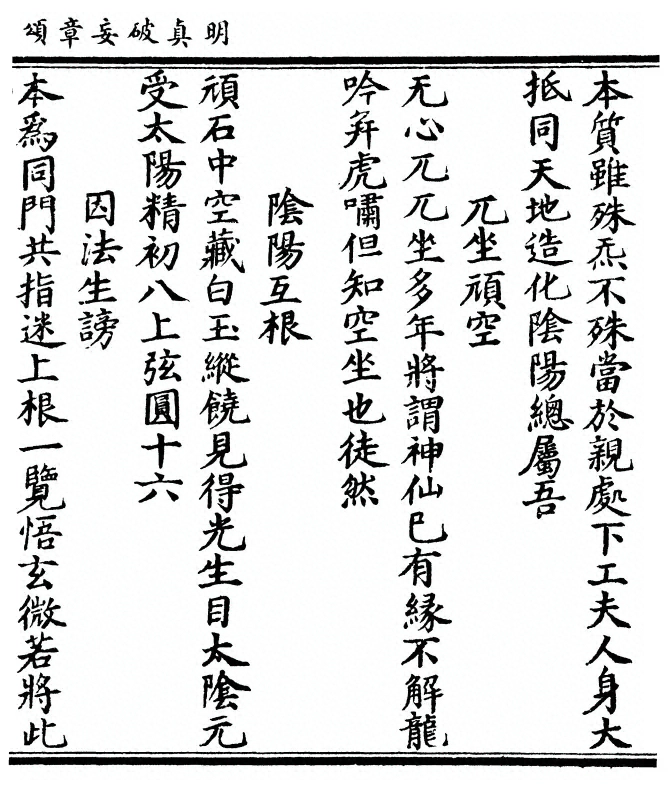 明真破妄章頌
本質雖殊炁不殊當於親處下工夫人身大
抵同天地造化陰陽總屬吾
兀坐頑空
无心兀兀坐多年將謂神仙巳有緣不解龍
吟幷虎嘯但知空坐也徒然
陰陽互根
頑石中空藏白玉縱饒見得光生目太陰元
受太陽精初八上弦圓十六
因法生謗
本爲同門共指迷上根一覽悟玄微若將此